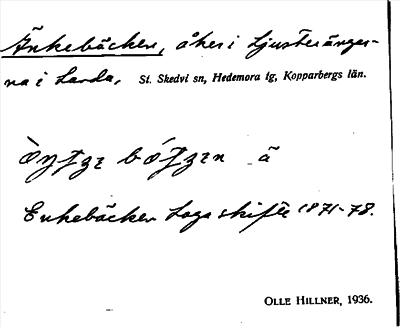 Änkebäcken, åker i Ljusteränger-
na i Larda, St. Skedvi sn, Hedemora tg, Kopparbergs län.
ä
Enkebäcken Laga skifte 1871-78.
OLLE HILLNER, 1936.